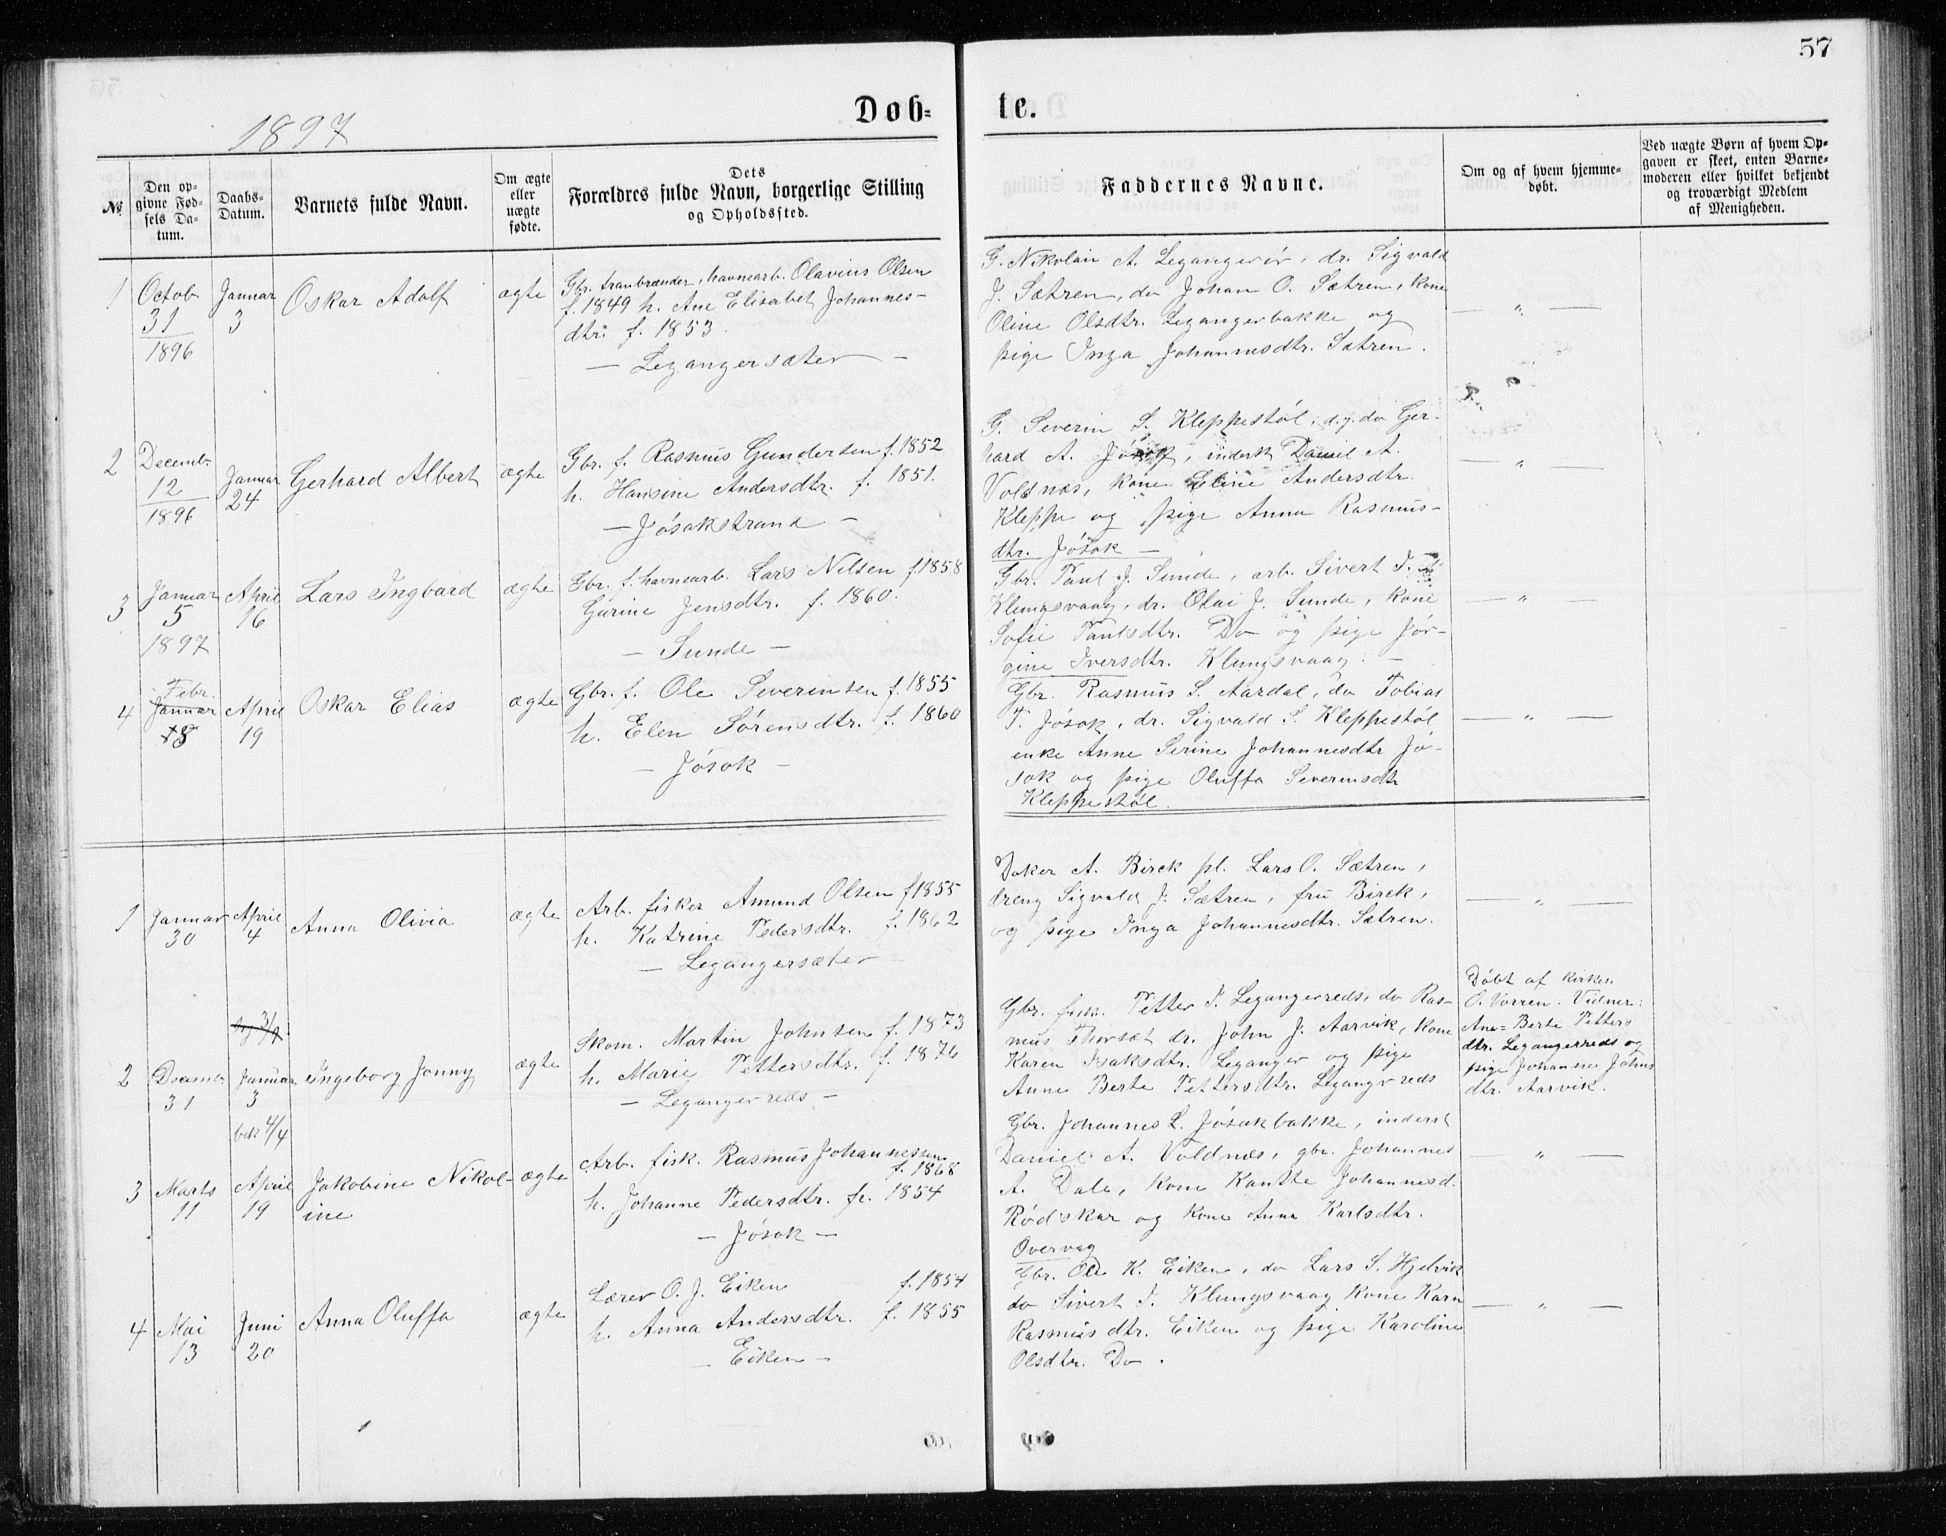 57
1897
Døb-
te.
№
Den op-
givne Fød-
sels Da-
tum.
Daabs-
Datum.
Barnets fulde Navn.
Om ægte
eller
uægte
fødte.
Dets
Forældres fulde Navn, borgerlige Stilling
og Opholdssted.
Faddernes Navne.
Om og af hvem hjemme-
døbt.
Ved uægte Børn af hvem Op-
gaven er skeet, enten Barne-
moderen eller hvilket bekjendt
og troværdigt Medlem
af Menigheden.
1
Octob.
31
1896
Januar
3
Oskar Adolf
ægte
Gbr. tranbrænder, havnearb. Olavius Olsen
f. 1849 h. Ane Elisabet Johannes-
dtr. f. 1853.
— Legangersæter —
G. Nikolai A. Legangerør, dr. Sigvald
J. Sætren, do Johan O. Sætren, kone
Oline Olsdtr. Legangerbakke og
pige Inga Johannesdtr. Sætren.
— " —
2
Decemb.
12
1896
Januar
24
Gerhard Albert
ægte
Gbr. f. Rasmus Gundersen f. 1852
h. Hansine Andersdtr. f. 1851.
— Jøsokstrand —
G. Severin S. Kleppestøl, d.g. do Ger-
hard A. Jøsok, inderst Daniel A.
Voldnæs, kone Eline Andersdtr.
Kleppe og pige Anna Rasmus-
dtr. Jøsok —
— " —
3
Januar
5
1897
April
16
Lars Ingbard
ægte
Gbr. f. havnearb. Lars Nilsen f. 1858
Gurine Jensdtr. f. 1860.
— Sunde —
Gbr. Paul J. Sunde, arb. Sivert I.
Klungsvaag, dr. Olai J. Sunde, kone
Sofie Paulsdtr. Do og pige Jør-
gine Iversdtr. Klungsvaag. —
— " —
4
Febr.
Januar
18
April
19
Oskar Elias
ægte
Gbr. f. Ole Severinsen f. 1855
h. Elen Sørensdtr. f. 1860
— Jøsok —
Gbr. Rasmus S. Aardal, do Tobias
T. Jøsok, dr. Sigvald S. Kleppestøl
enke Anne Serine Johannesdtr Jø-
sok og pige Oluffa Severinsdtr
Kleppestøl.
— " —
1
Januar
30
April
4
Anna Olivia
ægte
Arb. fisker Amund Olsen f 1855
h. Katrine Pedersdtr. f. 1862
— Legangersæter —
A. Birck pl. Lars O. Sætren,
dreng Sigvald J. Sætren, fru Birck,
og pige Inga Johannesdtr. Sætren.
— " —
2
Decemb.
31
Januar
3
bek 4/4
Ingeborg Jonny
ægte
Skom. Martin Johnsen f. 1873
h. Marie Pettersdtr. f. 1876
— Legangerreds —
Gbr. fisk. Petter I. Legangerreds, do Ras-
mus Thorsæt dr. John J. Aarvik, kone
Karen Isaksdtr. Leganger og pige
Anne Berte Pettersdtr. Legangerreds
Døbt af kirkes.
O. Vorren. Vidner:
Ane-Berte Petters
dtr. Legangerreds og
pige Johanne Johns
dtr. Aarvik.
3
Marts
11
April
19
Jakobine Nikol-
ine
ægte
Arb. fisk. Rasmus Johannessen
f. 1868
h. Johanne Pedersdtr. f. 1854
— Jøsok —
Gbr. Johannes L. Jøsokbakke, inderst
Daniel A. Voldnæs, gbr. Johannes
A. Dale, kone Johannesd.
Rødskar og kone Anna Karlsdtr.
Overvag
— " —
4
Mai
13
Juni
20
Anna Oluffa
ægte
Lærer O. J. Eiken f. 1854
h. Anna Andersdtr. f. 1855
— Eiken —
Gbr. Ole K. Eiken, do Lars S. Hjelvik
do Sivert I. Klungsvaag kone Karn
Rasmusdtr. Eiken og pige Karoline
Olsdtr. Do.
— " —